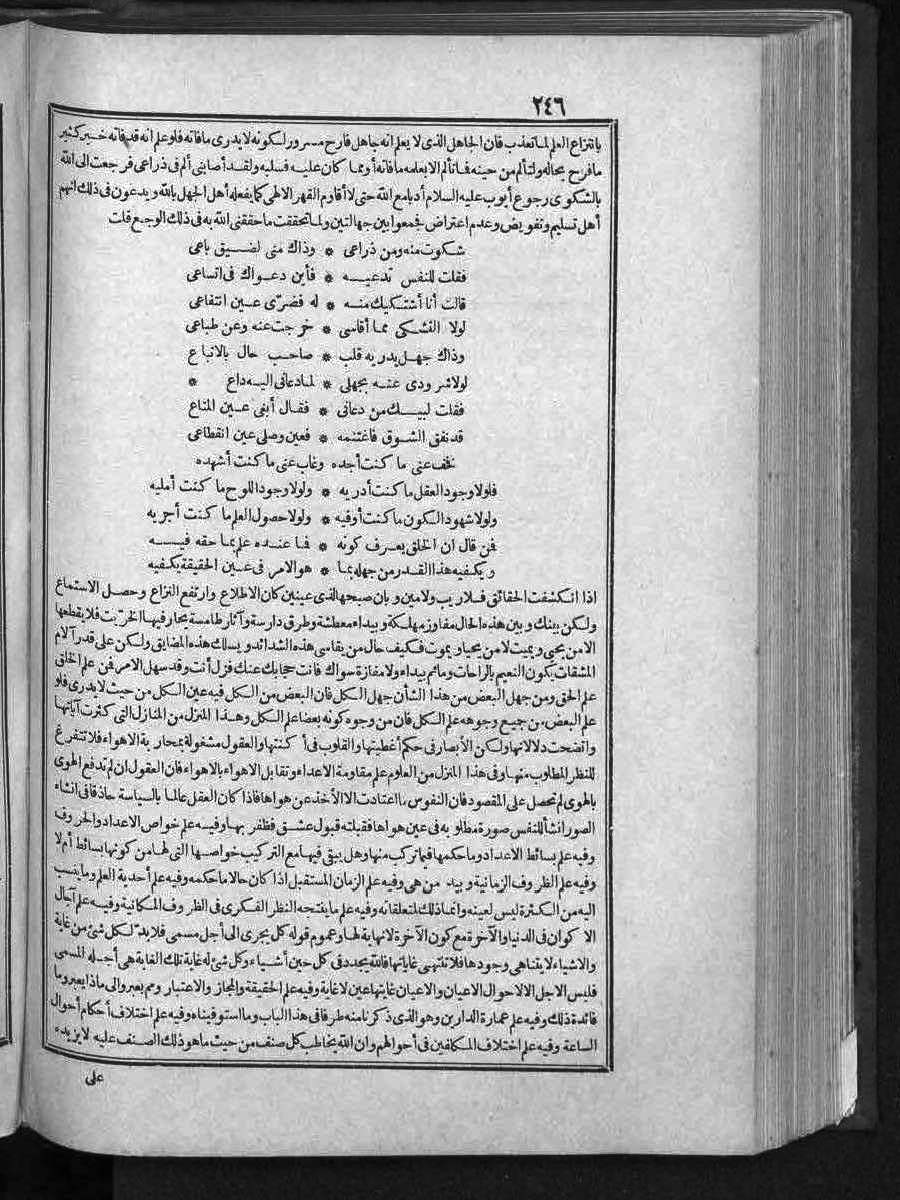 ٢٤٦
بانتزاع العلم لما تعذب فان الجاهل الذى لا يعلم انه جاهل فارح مسرور لكونه لا يدرى ما فاته فلو علم انه قد فاته خير كثير
ما فرح بحاله ولتألم من حينه فما تألم الا بعلمه ما فاته أو مما كان عليه فسلبه ولقد أصابنى ألم فى ذراعى فرجعت الى الله
بالشكوى رجوع أيوب عليه السلام أدبا مع الله حتى لا أقاوم القهر الالهى كما يفعله أهل الجهل بالله ويدعون فى ذلك انهم
أهل تسليم وتفويض وعدم اعتراض فجمعوا بين جهالتين ولما تحققت ما حققنى الله به فى ذلك الوجع قلت
شكوت منه ومن ذراعى * وذاك منى لضيق باعى
فقلت للنفس تدعيه * فأين دعواك فى اتساعى
قالت أنا أشتكيك منه * له فضرى عين انتفاعى
لولا التشكى مما أقاسى * خرجت عنه وعن طباعى
وذاك جهل يدريه قلب * صاحب حال بالاتباع
لولا شرودى عنه بجهلى * لما دعانى اليه داع *
فقلت لبيك من دعانى * فقال أبغى عين المتاع
قد نفق الشوق فاغتنمه * فعين وصلى عين انقطاعى
نفف عنى ما كنت أجده وغاب عنى ما كنت أشهده
فلولا وجود العقل ما كنت أدريه * ولولا وجود اللوح ما كنت أمليه
ولولا شهود الكون ما كنت أوفيه * ولولا حصول العلم ما كنت أجريه
فمن قال ان الخلق يعرف كونه * فما عنده علم بما حقه فيه
ويكفيه هذا القدر من جهله بما * هو الامر فى عين الحقيقة يكفيه
اذا انكشفت الحقائق فلا ريب ولا مين وبان صبحها لذى عينين كان الاطلاع وارتفع النزاع وحصل الاستماع
ولكن بينك وبين هذه الحال مفاوز مهلكة وبيداء معطشة وطرق دارسة وآثار طامسة يحار فيها الخريت فلا يقطعها
الا من يحيى ويميت لا من يحيا ويموت فكيف حال من يقاسى هذه الشدائد ويسلك هذه المضايق ولكن على قدر آلام
المشقات يكون النعيم بالراحات وما ثم بيداء ولا مفازة سواك فأنت حجابك عنك فزل أنت وقد سهل الامر فمن علم الخلق
علم الحق ومن جهل البعض من هذا الشأن جهل الكل فان البعض من الكل فيه عين الكل من حيث لا يدرى فلو
علم البعض من جميع وجوهه علم الكل فان من وجوه كونه بعضا علم الكل وهذا المنزل من المنازل التى كثرت آياتها
واتضحت دلالاتها ولكن الأبصار فى حكم أغطيتها والقلوب فى أكنتها والعقول مشغولة بمحاربة الاهواء فلا تتفرغ
للنظر المطلوب منها وفى هذا المنزل من العلوم علم مقاومة الاعداء وتقابل الاهواء بالاهواء فان العقول ان لم تدفع الهوى
بالهوى لم تحصل على المقصود فان النفوس ما اعتادت الا الأخذ عن هواها فاذا كان العقل عالما بالسياسة حاذقا فى انشاء
الصور أنشأ للنفس صورة مطلوبه فى عين هواها فقبلته قبول عشق فظفر بها وفيه علم خواص الاعداد والحروف
وفيه علم بسائط الاعداد وما حكمها فيما تركب منها وهل يبقى فيها مع التركيب خواصها التى لها من كونها بسائط أم لا
وفيه علم الظروف الزمانية وبيد من هى وفيه علم الزمان المستقبل اذا كان حالا ما حكمه وفيه علم أحدية العلم وما ينسب
اليه من الكثرة ليس لعينه وانما ذلك لمتعلقاته وفيه علم ما يفتحه النظر الفكرى فى الظروف المكانية وفيه علم آجال
الاكوان فى الدنيا والآخرة مع كون الآخرة لا نهاية لها وعموم قوله كل يجرى الى أجل مسمى فلا بد لكل شئ من غاية
والاشياء لا يتناهى وجودها فلا تنتهى غاياتها فالله يجدد فى كل حين أشياء وكل شئ له غاية تلك الغاية هى أجله المسمى
فليس الاجل الا لاحوال الاعيان والاعيان غايتها عين لا غاية وفيه علم الحقيقة والمجاز والاعتبار ومم يعبر والى ماذا يعبر وما
فائدة ذلك وفيه علم عمارة الدارين وهو الذى ذكرنا منه طرفا فى هذا الباب وما استوفيناه وفيه علم اختلاف أحكام أحوال
الساعة وفيه علم اختلاف المكلفين فى أحوالهم وان الله يخاطب كل صنف من حيث ما هو ذلك الصنف عليه لا يزيده
على